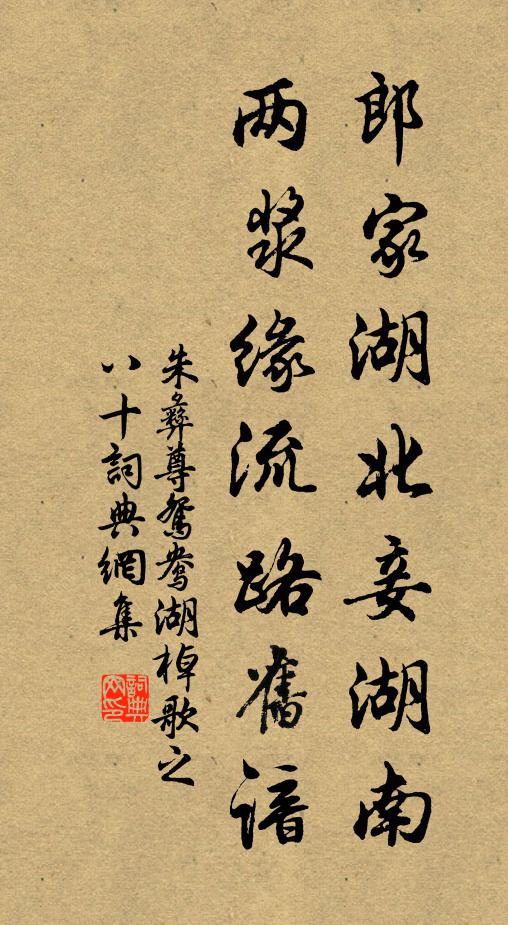 郎家湖北妾湖南
两桨缘流路旧谙
朱彝尊鸳鸯湖棹歌之
八十詞典網集
詞典